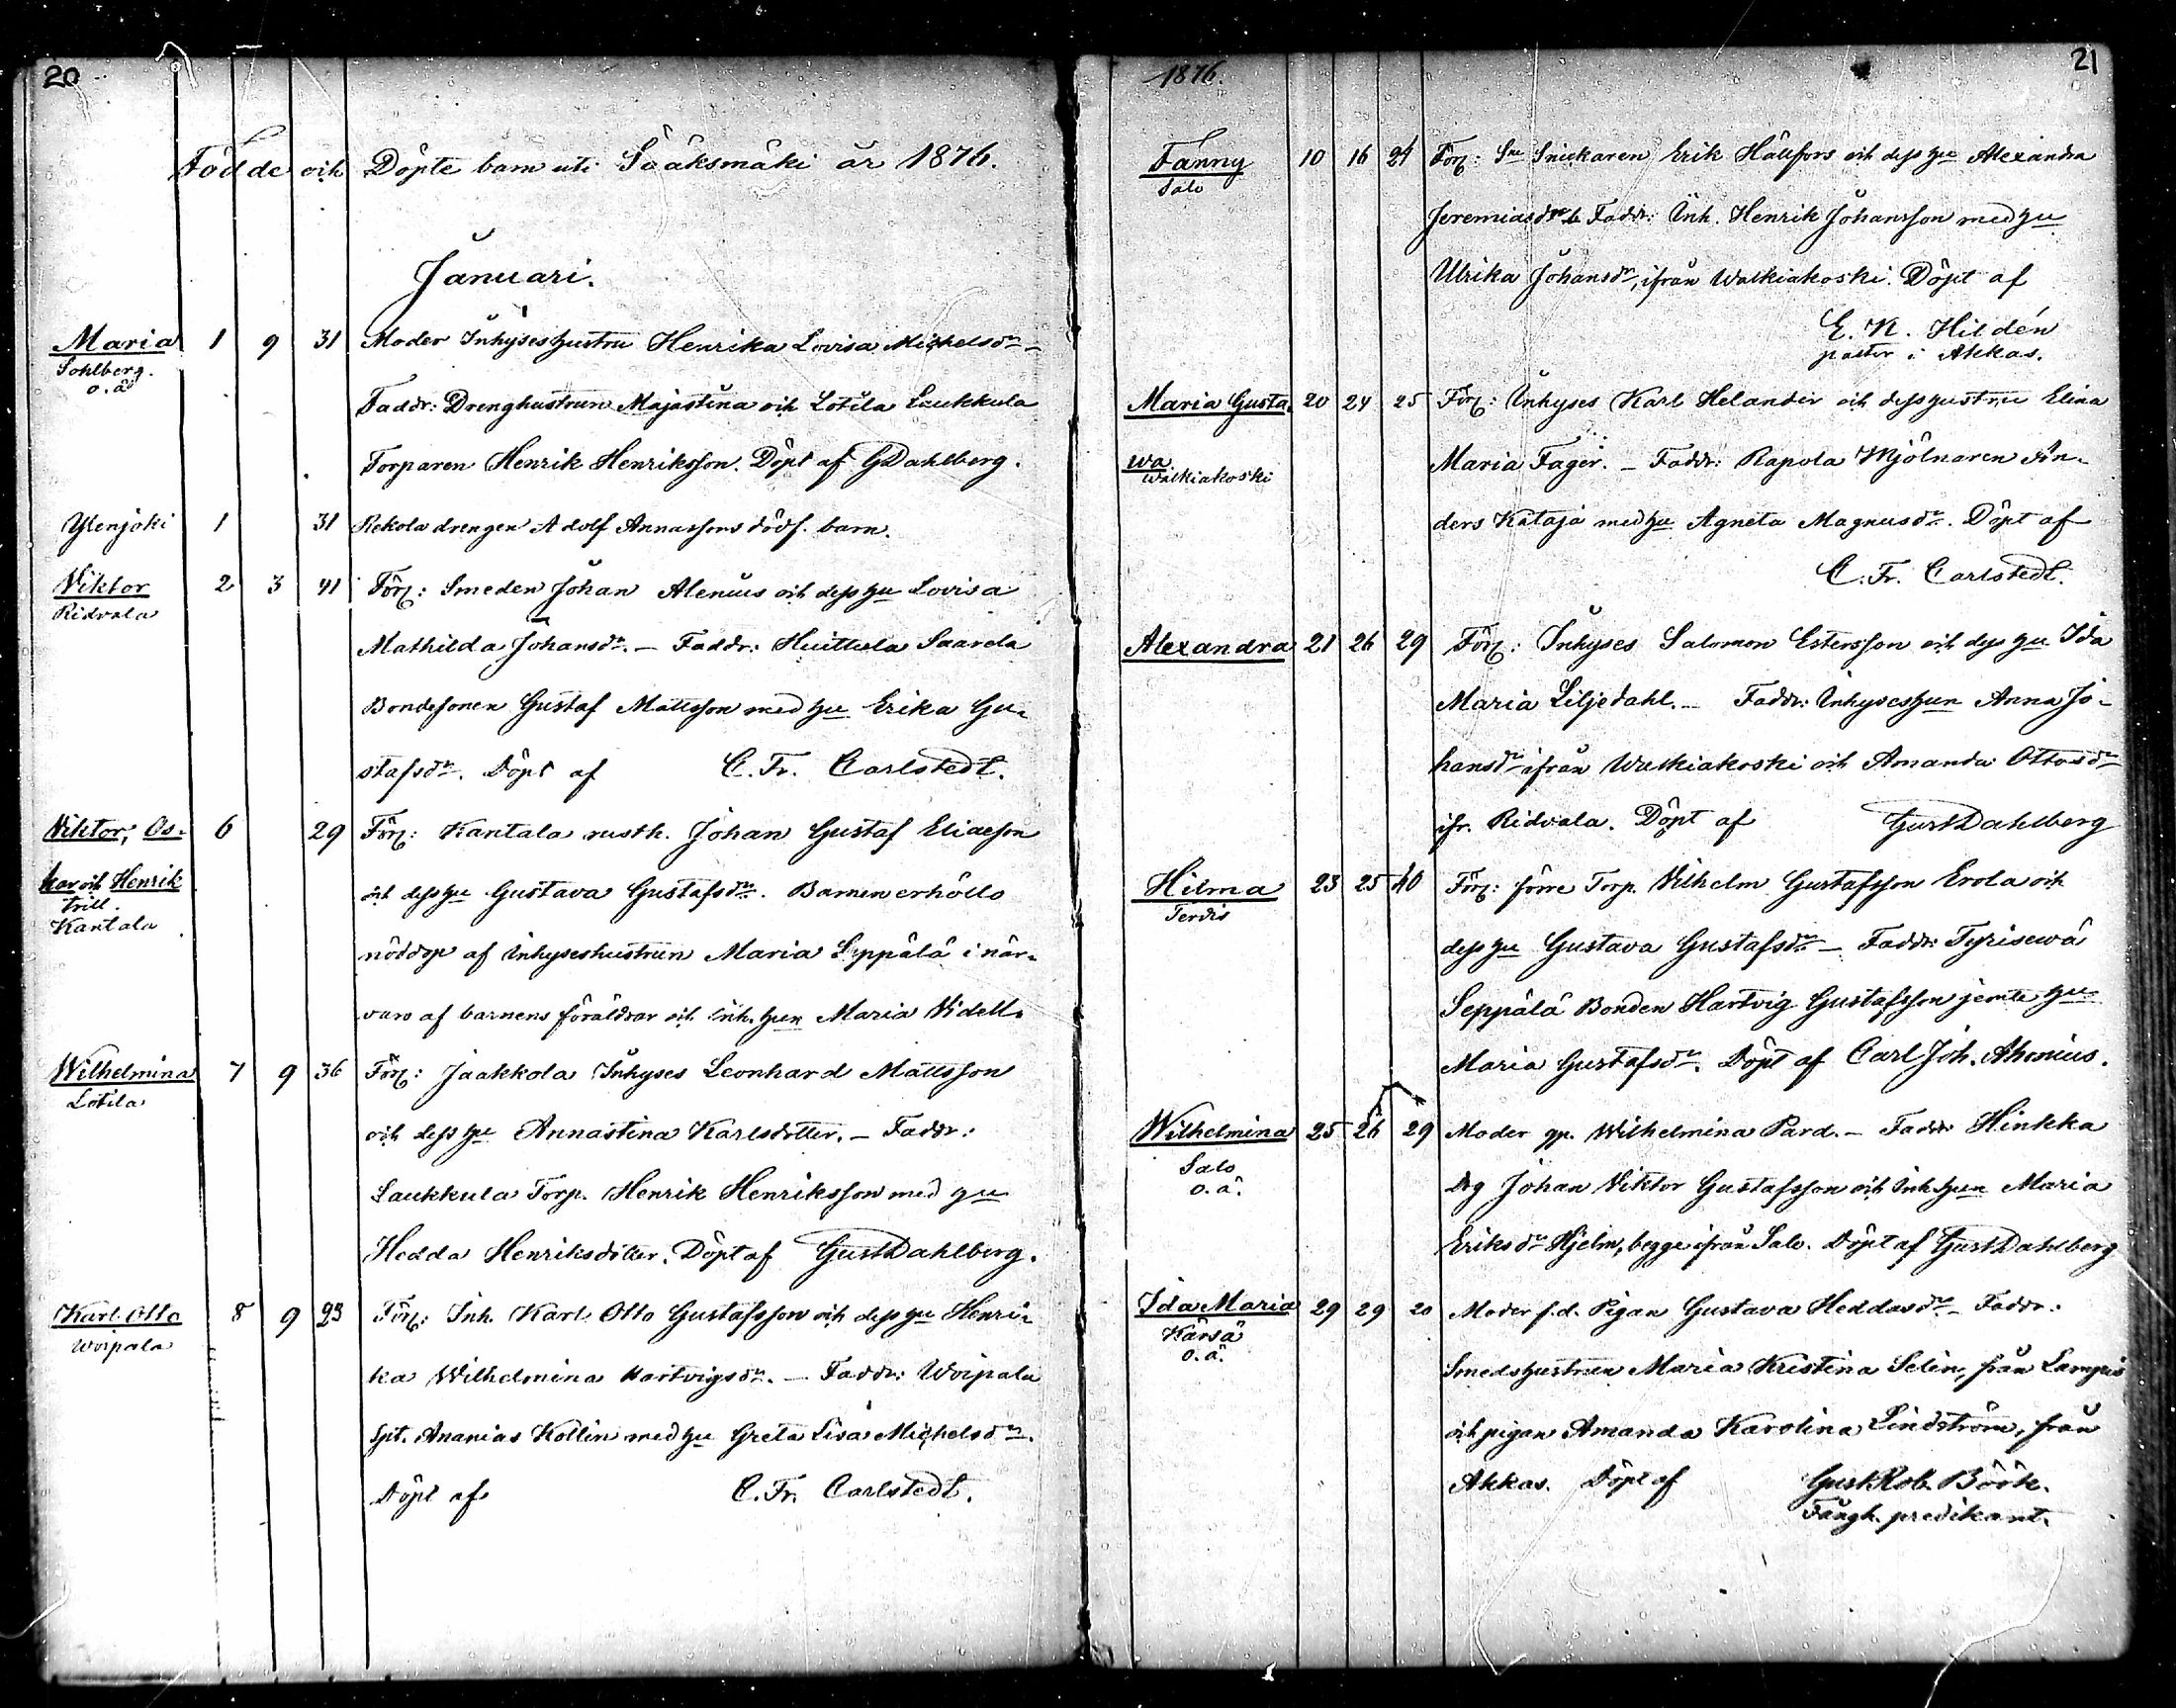 20
Födde och Döpte barn uti Sääksmäki år 1876.
Januari.
Maria 1 9 31 Moder Inhyseshustru Henrika Lovisa Michelsdr –
Sohlberg.
o. ä
Faddr: Drenghustrun Majastina och Lotila Laukkula
Torparen Henrik Henriksson. Döpt af GDahlberg.
Ylenjoki 1 31 Rekola drengen Adolf Annassons dödf. barn.
Viktor 2 3 41 Förß: Smeden Johan Alenius och dess hu Lovisa
Ridvala
Mathilda Johansdr. – Faddr: Huittula Saarela
Bondesonen Gustaf Mattsson med hu Erika Gu-
stafsdr. Döpt af C. Fr. Carlstedt.
Viktor, Os- 6 29 Förß: Kantala rusth. Johan Gustaf Eliaeson
kar och Henrik och dess hu Gustava Gustafsdr. Barnen erhöllo
trill.
Kantala
nöddop af Inhyseshustrun Maria Seppälä i när-
varo af barnens föräldrar och Inh. hun Maria Videll.
Wilhelmina 7 9 36 Förß: Jaakkola Inhyses Leonhard Mattsson
Lotila
och dess hu Annastina Karlsdotter. – Faddr:
Laukkula Torp. Henrik Henriksson med hu
Hedda Henriksdotter. Döpt af GustDahlberg.
Karl Otto 8 9 23 Förß: Inh. Karl Otto Gustafsson och dess hu Henri-
Woipala
ka Wilhelmina Hartvigsdr. – Faddr: Woipala
Spt. Ananias Kollin med hu Greta Lisa Michelsdr.
Döpt af C. Fr. Carlstedt.
1876. 21
Fanny 10 16 24 Förß: Sne Snickaren Erik Hällfors och dess hu Alexandra
Salo
Jeremiasdr Faddr: Inh. Henrik Johansson med hu
Ulrika Johansdr, ifrån Walkiakoski. Döpt af
E. K. Hildén
pastor i Akkas.
Maria Gusta- 20 24 25 Förß: Inhyses Karl Helander och dess hustru Elina
wa Maria Fager. – Faddr: Rapola Mjölnaren An-
Walkiakoski
ders Kataja med hu Agneta Magnusdr. Döpt af
C. Fr. Carlstedt.
Alexandra 21 26 29 Förß: Inhyses Salomon Estersson och dess hu Ida
Maria Liljedahl. – Faddr: Inhyseshun Anna Jo-
hansdr ifrån Walkiakoski och Amanda Ottosdr
ifr. Ridvala. Döpt af GustDahlberg
Hilma 23 25 40 Förß: förre Torp. Vilhelm Gustafsson Erola och
Terdis
dess hu Gustava Gustafsdr – Faddr: Tyrisewä
Seppälä Bonden Hartvig Gustafsson jemte hu
Maria Gustafsdr. Döpt af Carl Joh. Ahonius.
Wilhelmina 25 26 29 Moder qp. Wilhelmina Pard. – Faddr: Hinkka
Salo
o. ä.
drg Johan Viktor Gustafsson och Inh hun Maria
Eriksdr Hjelm, begge ifrån Salo. Döpt af GustDahlberg
Ida Maria 29 29 20 Moder f.d. Pigan Gustava Heddasdr – Faddr:
Kärsä
o. ä.
Smedshustrun Maria Kristina Selin, från Lampis
och pigan Amanda Karolina Lindström, från
Akkas. Döpt af Gust Rob. Böök.
Fängh. predikant.